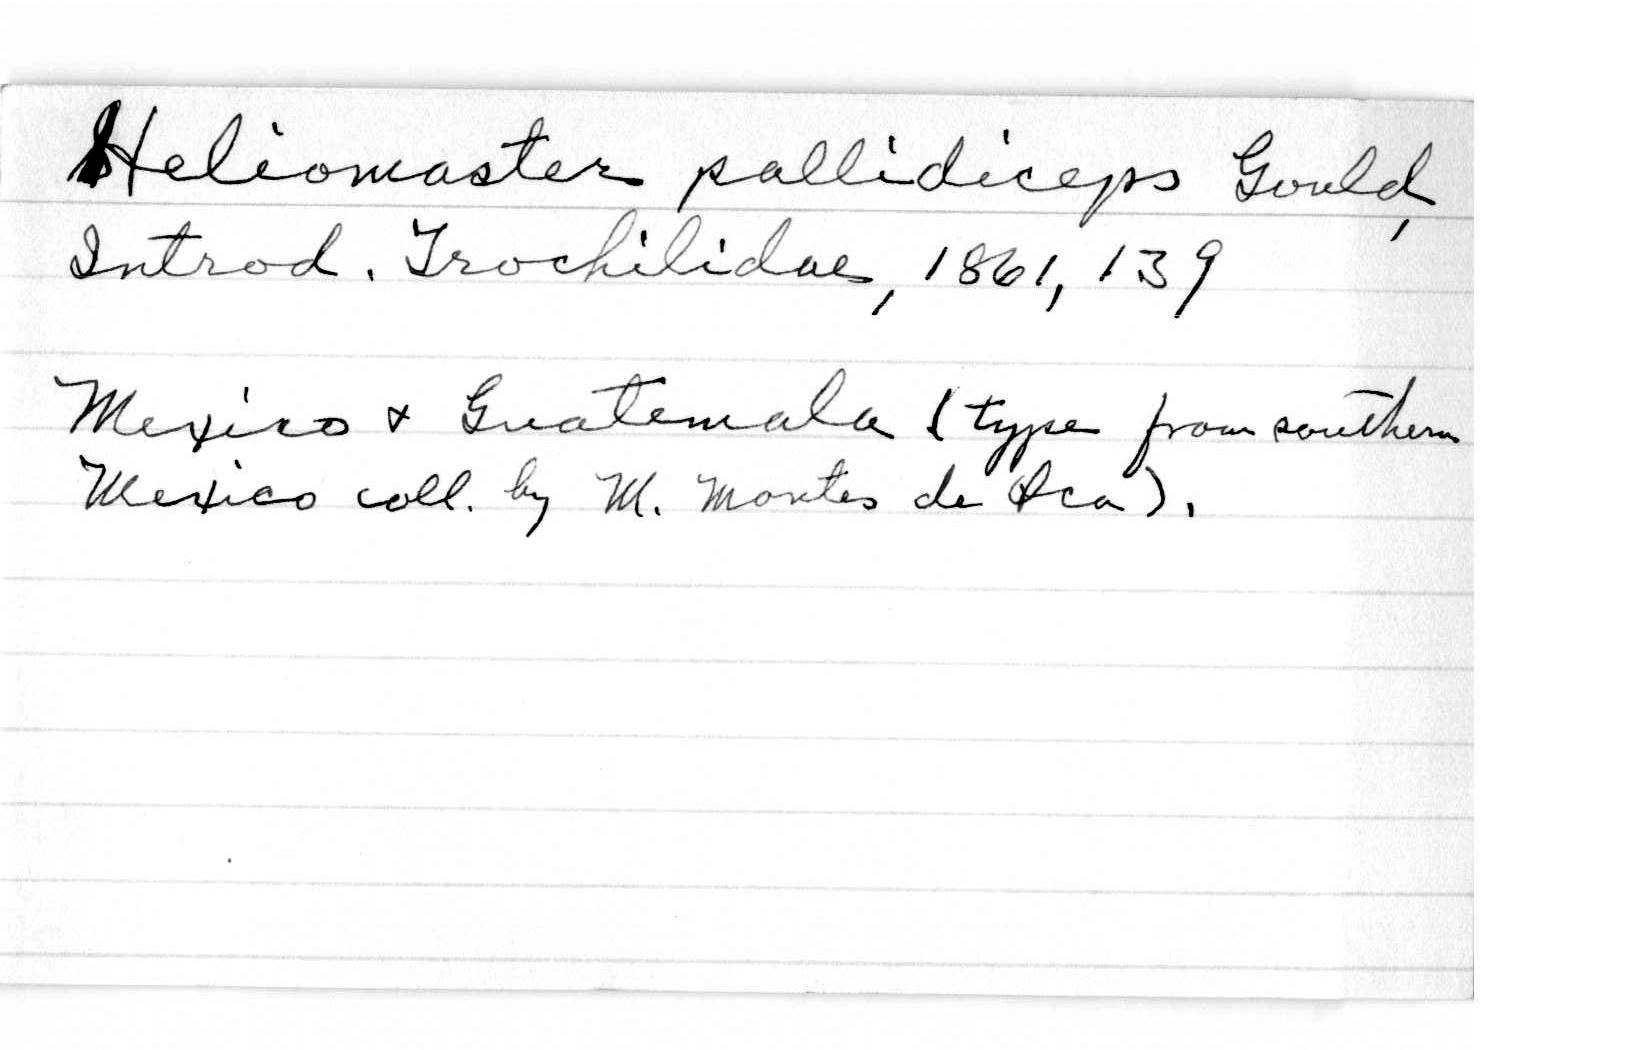 Heliomaster pallidiceps Gould,
Introd. Trochilidae, 1861, 139
Mexico & Guatemala (type from southern
Mexico coll. by M. Montes de Oca).